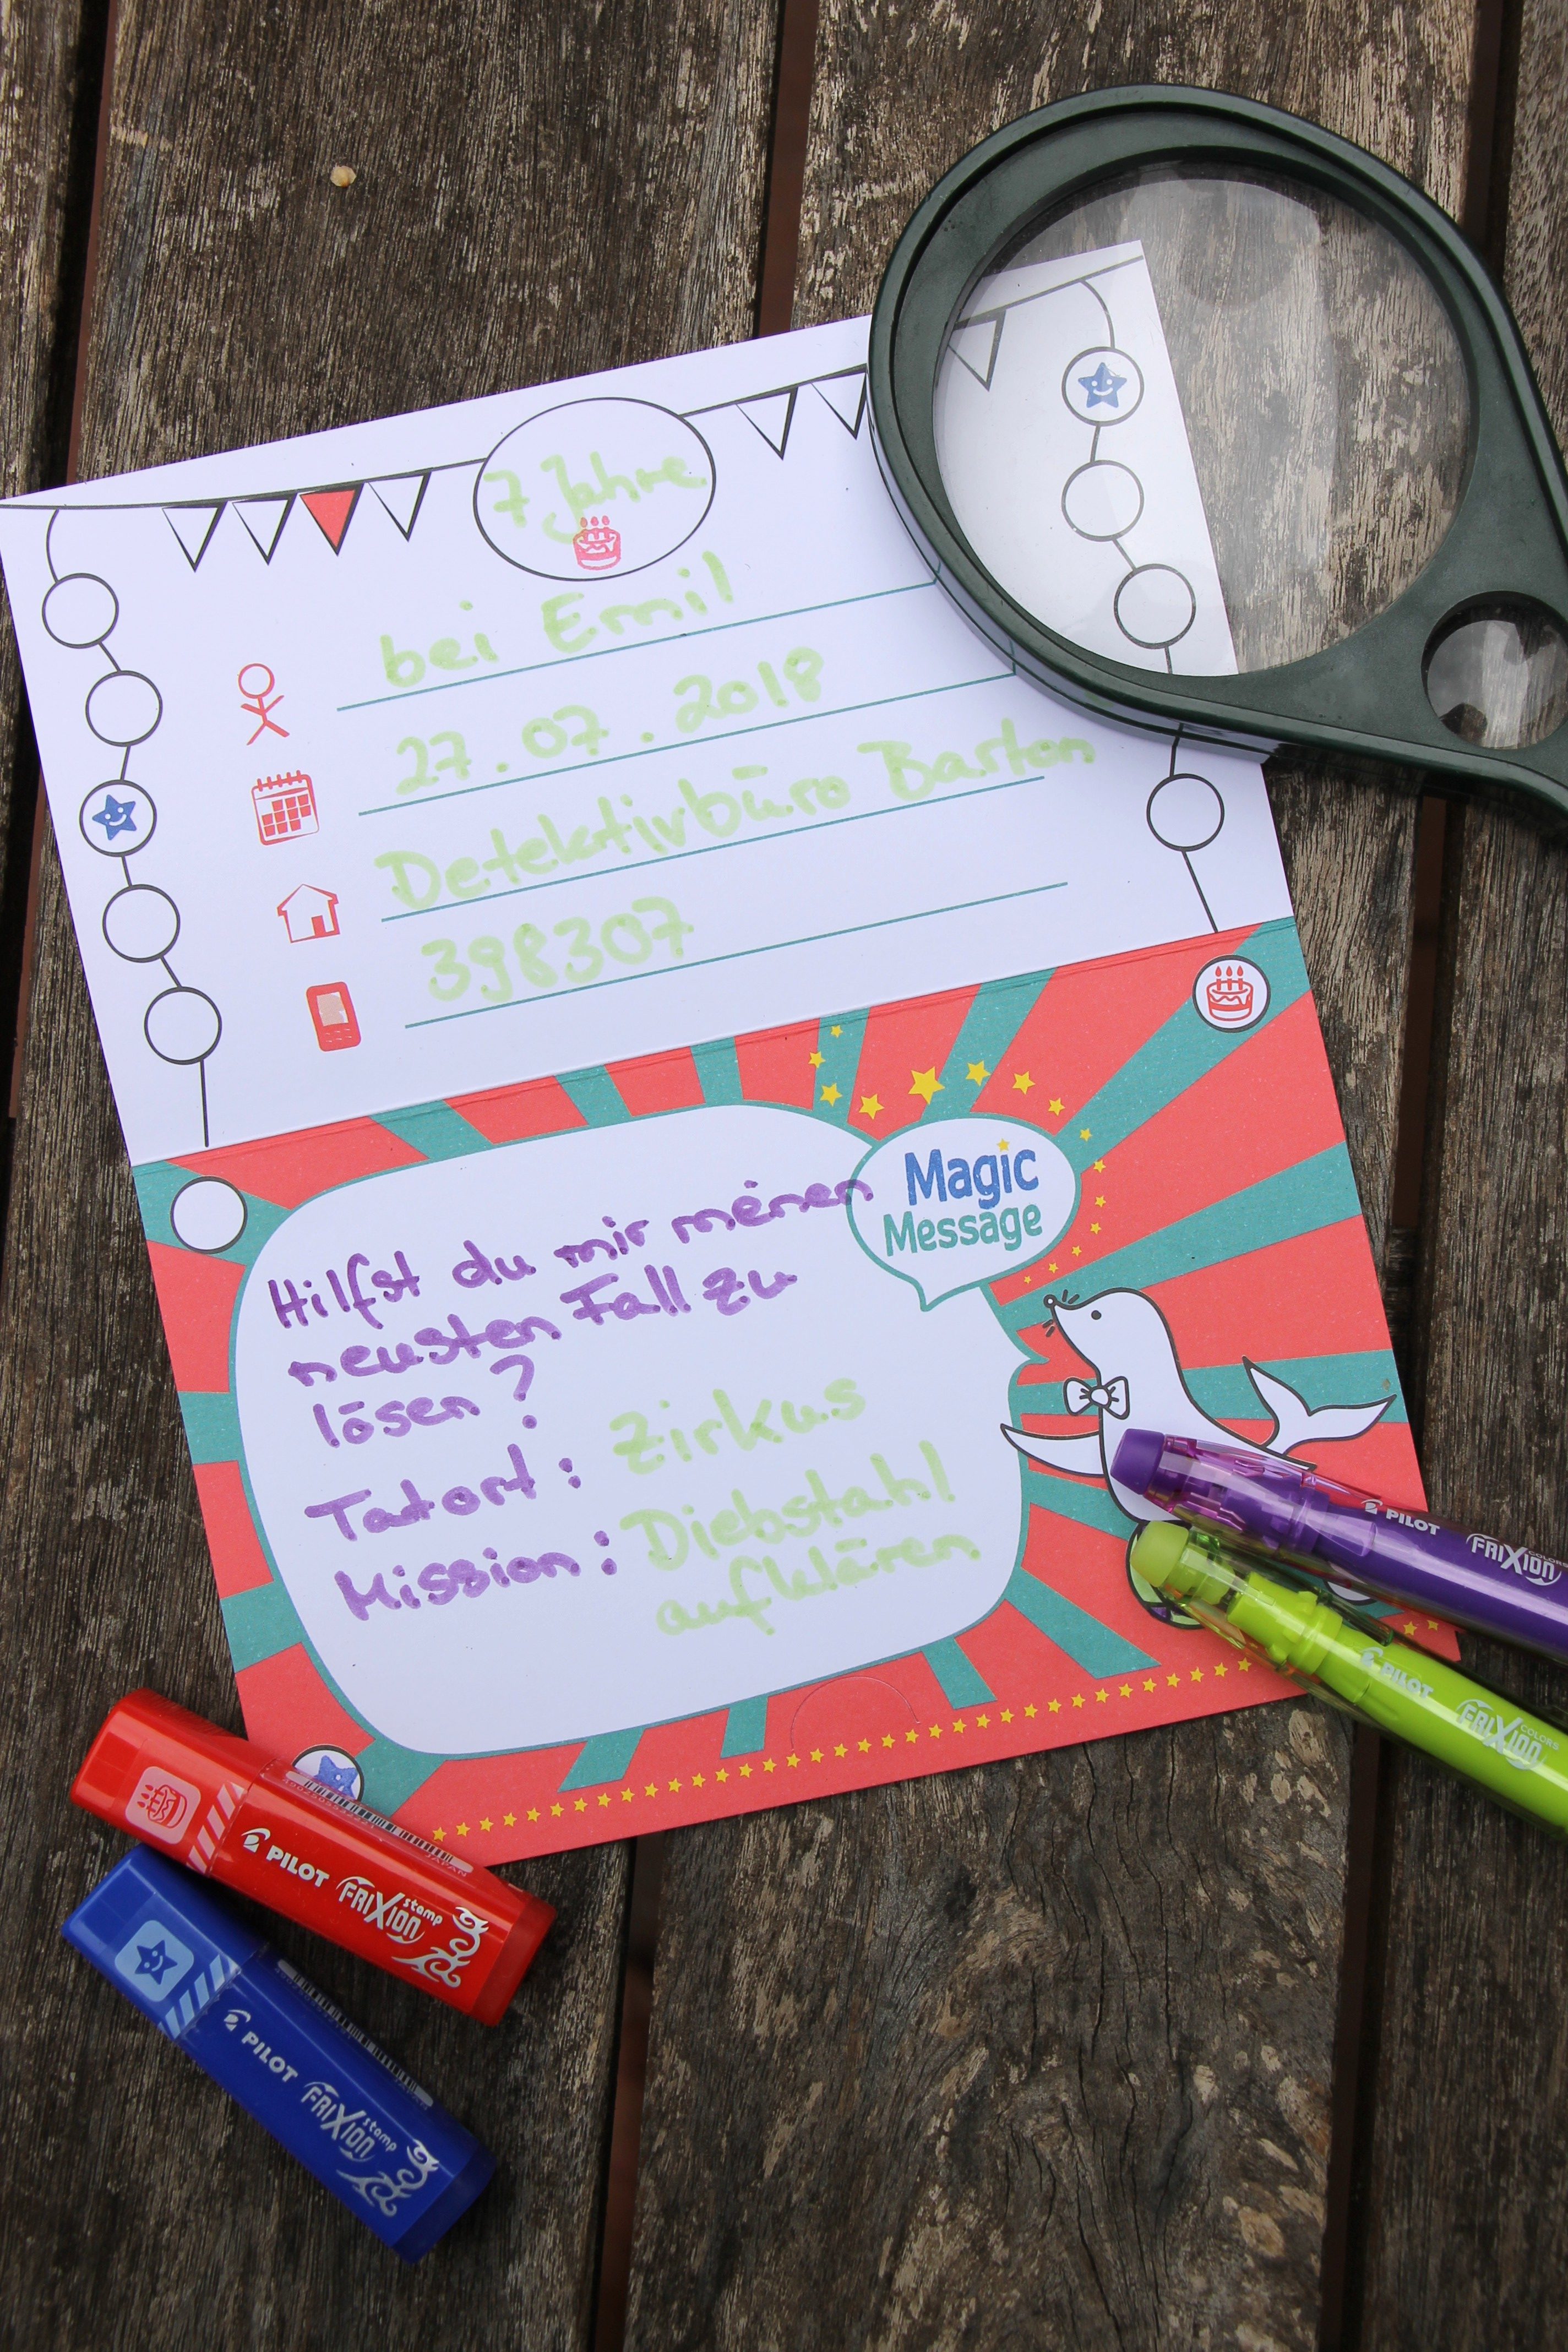 7 Jahre
bei Emil
27.07.2018
Detektivbüro Barton
398307
Magic
Message
Hilfst du mir meinen
neusten Fall zu
lösen?
Tatort: Zirkus
Mission: Diebstahl
aufklären
PILOT FRIXION COLORS
PILOT FRIXION COLORS
PILOT FRIXION stamp
PILOT FRIXION stamp